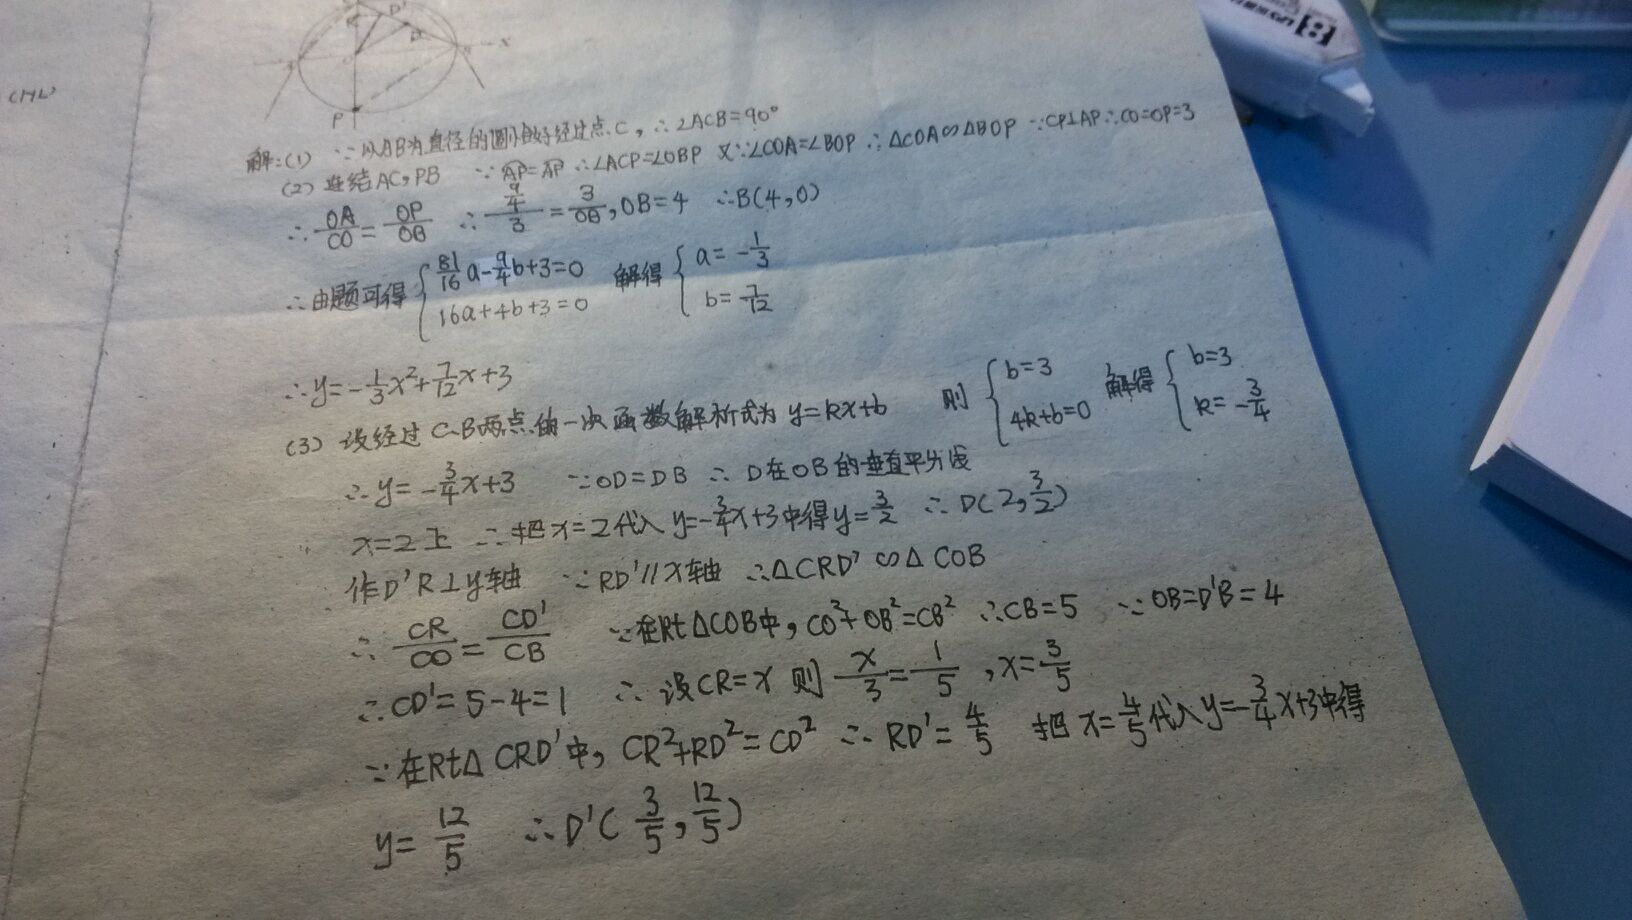 (HL)
x
P
解:(1) ∵以AB为直径的圆恰好经过点C,∴∠ACB=90°
(2) 连结AC,PB ∵AP=AP ∴∠ACP=∠OBP 又∵∠COA=∠BOP ∴△COA∽△BOP ∵CP⊥AP∴CO=OP=3
∴OA/CO=OP/OB ∴(9/4)/3=3/OB,OB=4 ∴B(4,0)
∴由题可得{81/16a-9/4b+3=0 16a+4b+3=0 解得{a=-1/3 b=7/12
∴y=-1/3x²+7/12x+3
(3) 设经过C、B两点的一次函数解析式为y=kx+b 则{b=3 4k+b=0 解得{b=3 k=-3/4
∴y=-3/4x+3 ∵OD=DB ∴D在OB的垂直平分线
x=2上 ∴把x=2代入y=-3/4x+3中得y=3/2 ∴D(2,3/2)
作D'R⊥y轴 ∵RD'//x轴 ∴△CRD'∽△COB
∴CR/CO=CD'/CB ∵在Rt△COB中,CO²+OB²=CB² ∴CB=5 ∵OB=D'B=4
∴CD'=5-4=1 ∴设CR=x 则x/3=1/5,x=3/5
∵在Rt△CRD'中,CR²+RD²=CD² ∴RD'=4/5 把x=4/5代入y=-3/4x+3中得
y=12/5 ∴D'(3/5,12/5)